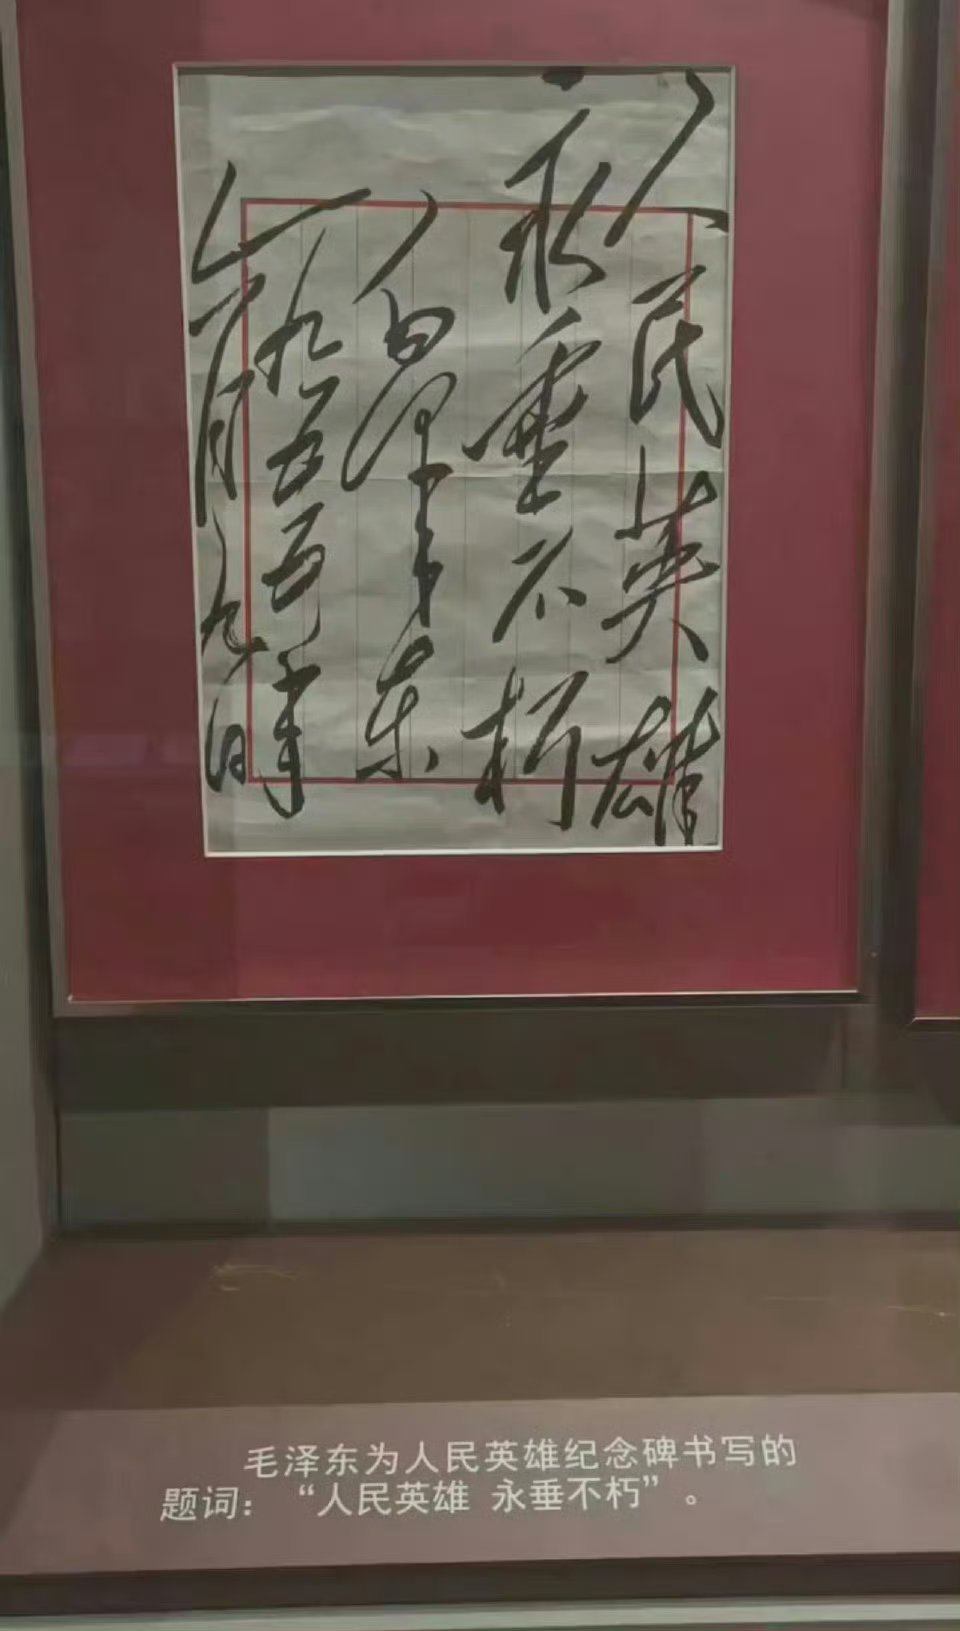 人民英雄
永垂不朽
毛泽东
一九五五年
六月九日
毛泽东为人民英雄纪念碑书写的
题词：“人民英雄 永垂不朽”。